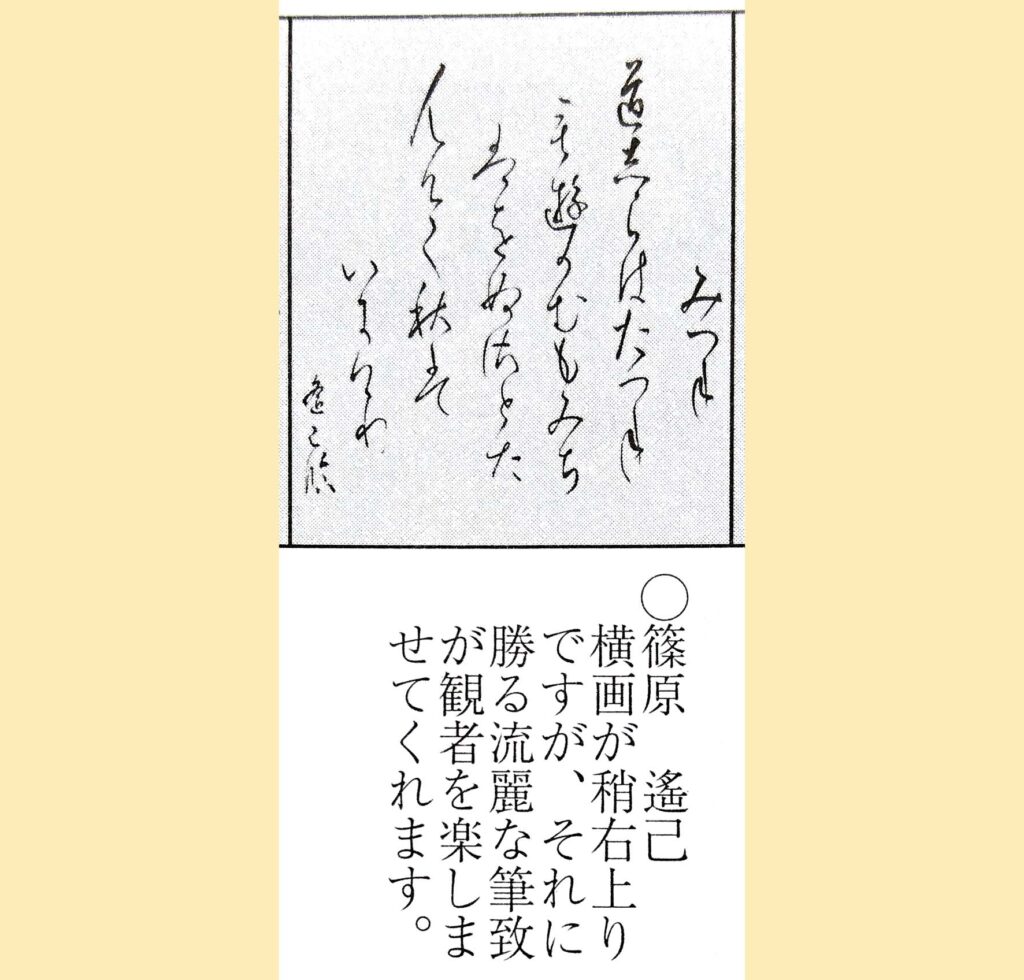 みつね
道志らはたつね
毛遊かむもみち
者をぬ佐とた
むけて秋盤
いにけり
遙己臨
○篠原 遙己
横画が稍右上り
ですが、それに
勝る流麗な筆致
が観者を楽しま
せてくれます。